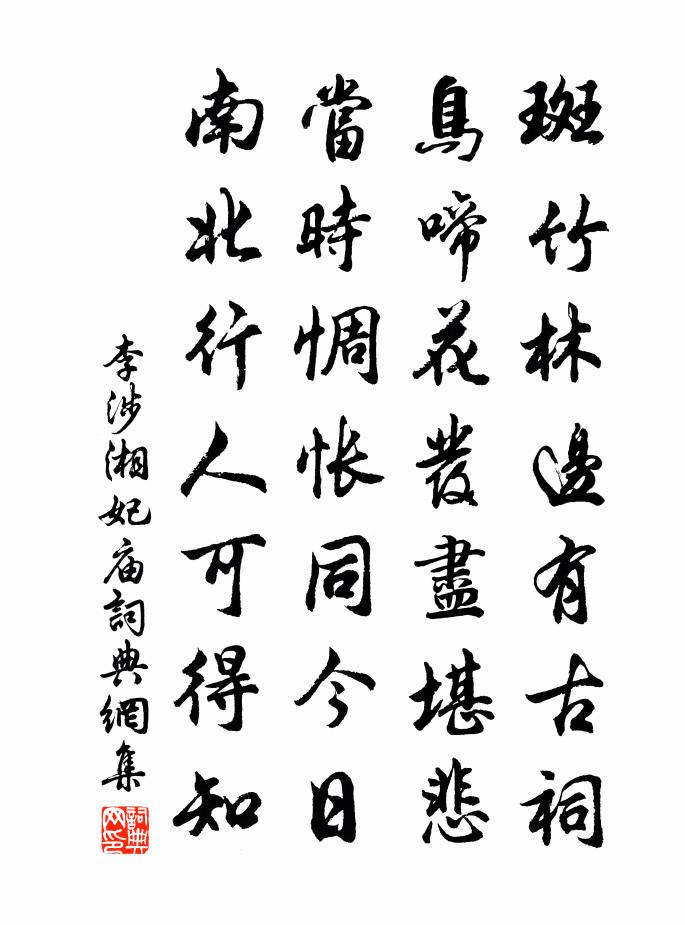 斑竹林邊有古祠
鳥啼花發盡堪悲
當時惆悵同今日
南北行人可得知
李涉湘妃庙詞典網集
詞典网印